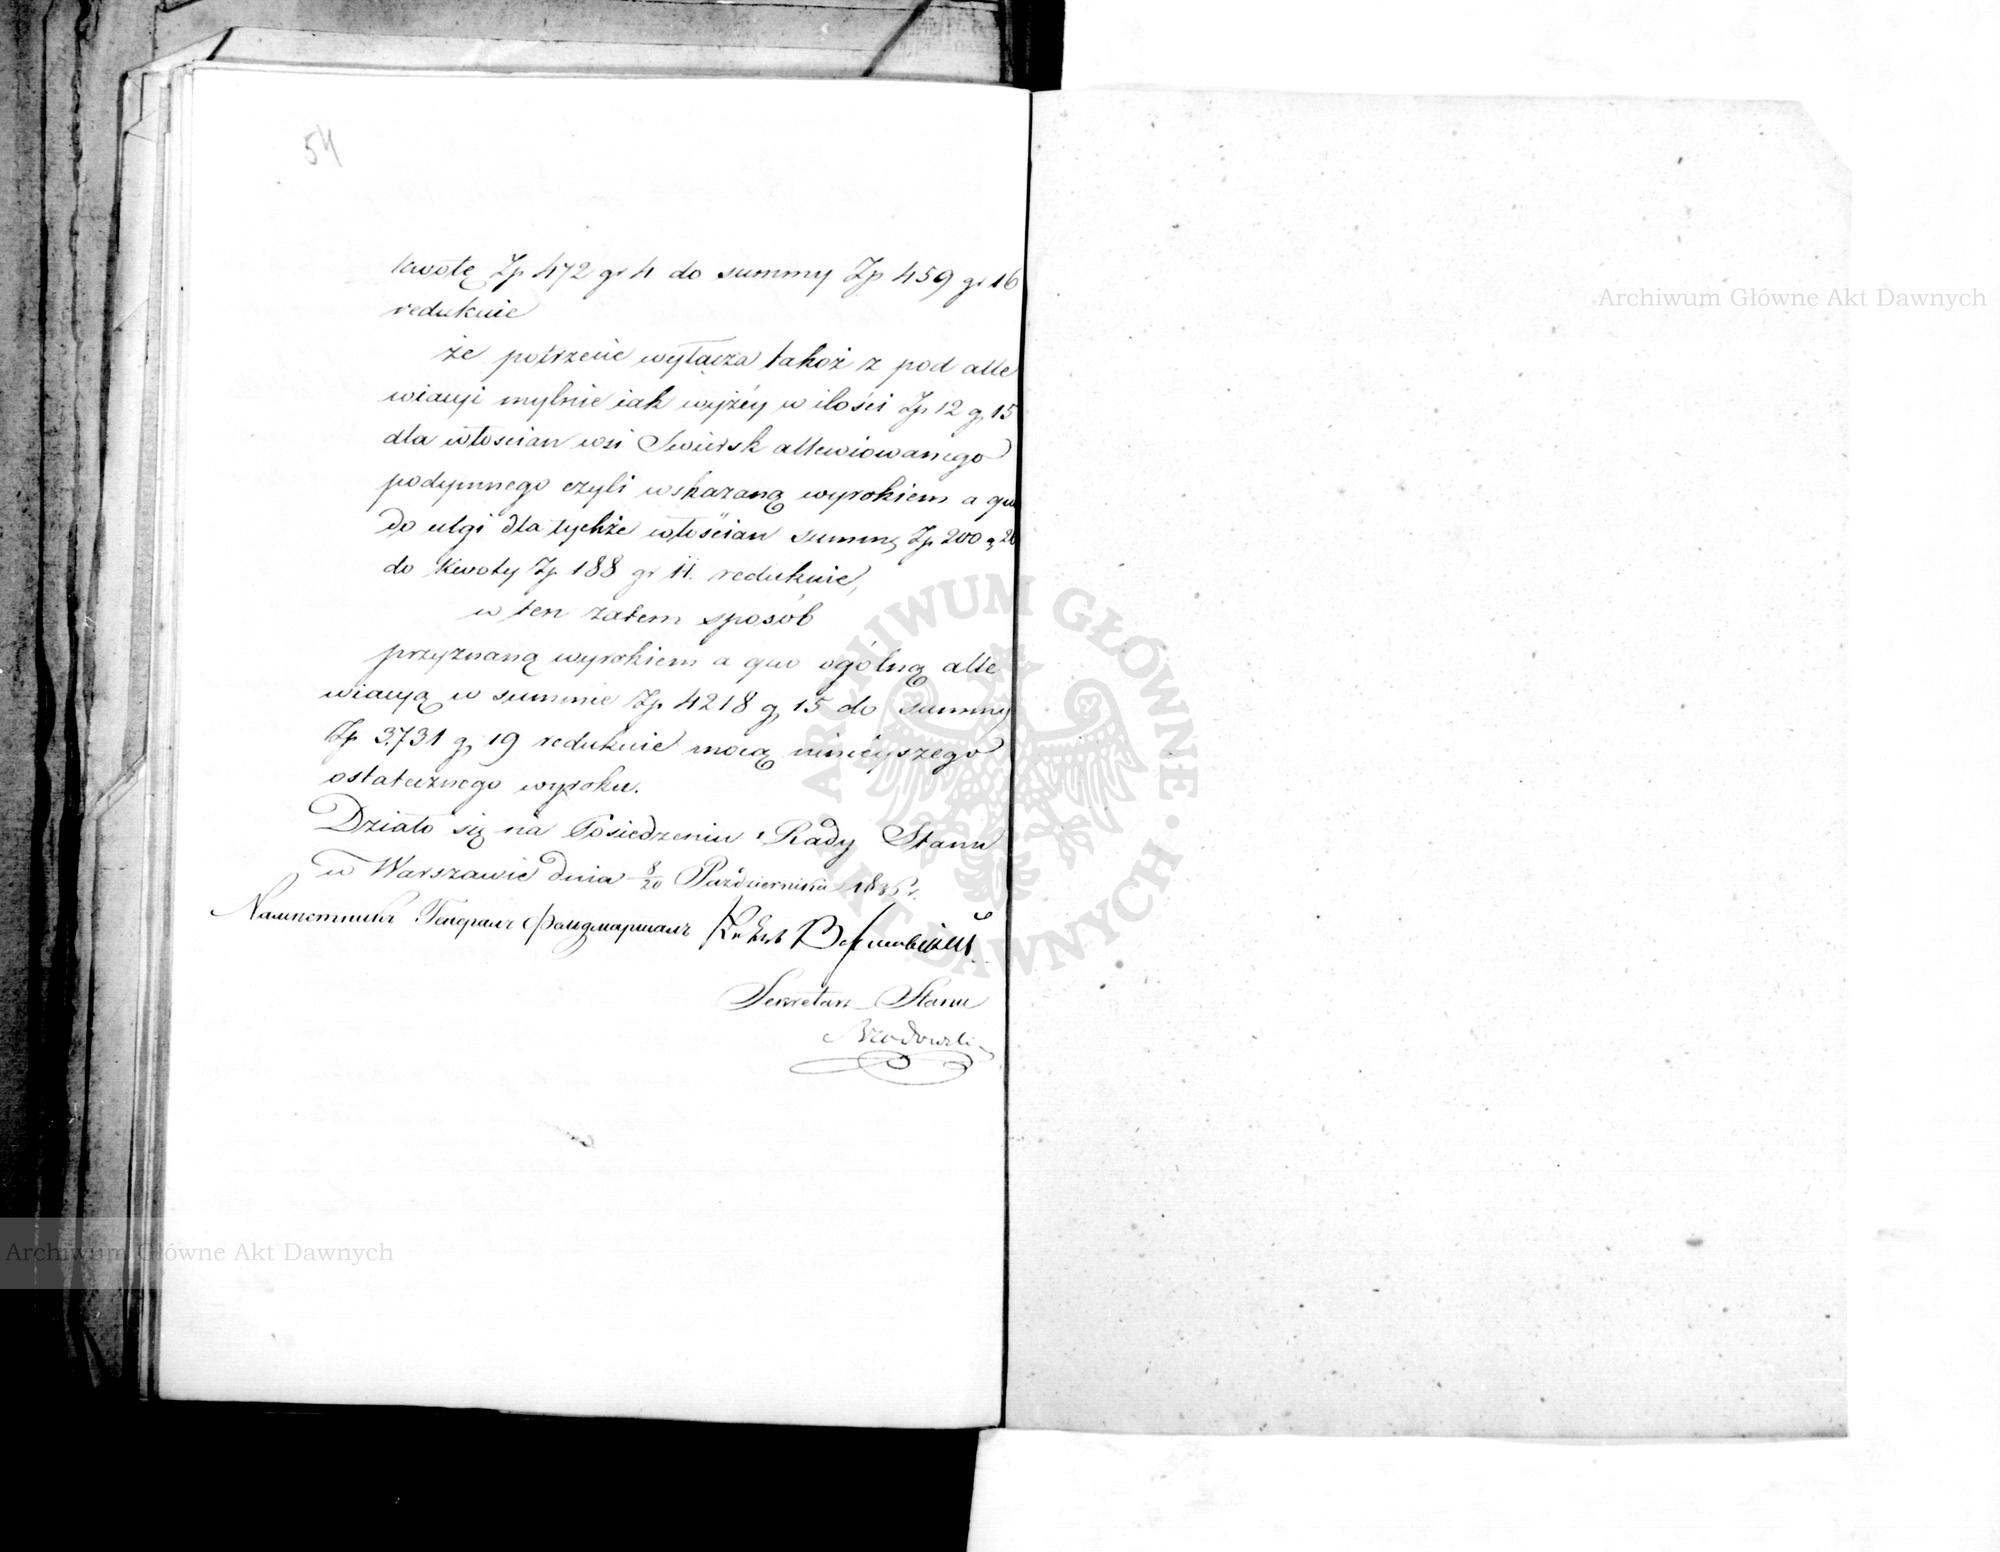 54
kwotę Zp 472 gr 4 do summy Zp 459 gr 16
redukuie
że potrzecie wyłącza takoż z pod alle
wiacyi mylnie iak wyżéy w ilości Zp 12 g 15
dla włościan wsi Swiersk allewiowanego
podymnego czyli wskazaną wyrokiem a quo
do ulgi dla tychże włościan summę Zp 200 g 26
do kwoty Zp 188 gr 11. redukuie,
w ten zatem sposób
przyznaną wyrokiem a quo ogólną alle
wiacyą w summie Zp 4218 g 15 do summy
Zp 3731 g 19 redukuie mocą ninieyszego
ostatecznego wyroku.
Działo się na Posiedzeniu Rady Stanu
w Warszawie dnia 8/20 Października 1836 r.
Намѣстникъ Генералъ Фельдмаршалъ
Sekretarz Stanu
Brodowski
Archiwum Główne Akt Dawnych
Archiwum Główne Akt Dawnych
ARCHIWUM GŁÓWNE AKT DAWNYCH